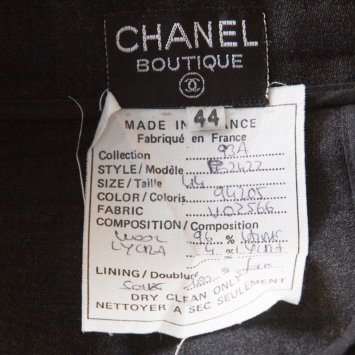 CHANEL
BOUTIQUE
44
MADE IN FRANCE
Fabriqué en France
Collection 93A
STYLE/Modèle
SIZE/Taille 44
COLOR/Coloris 94205
FABRIC V02566
COMPOSITION/Composition
WOOL 96 %
LYCRA 4 % LYCRA
LINING/Doublure
DRY CLEAN ONLY
NETTOYER A SEC SEULEMENT